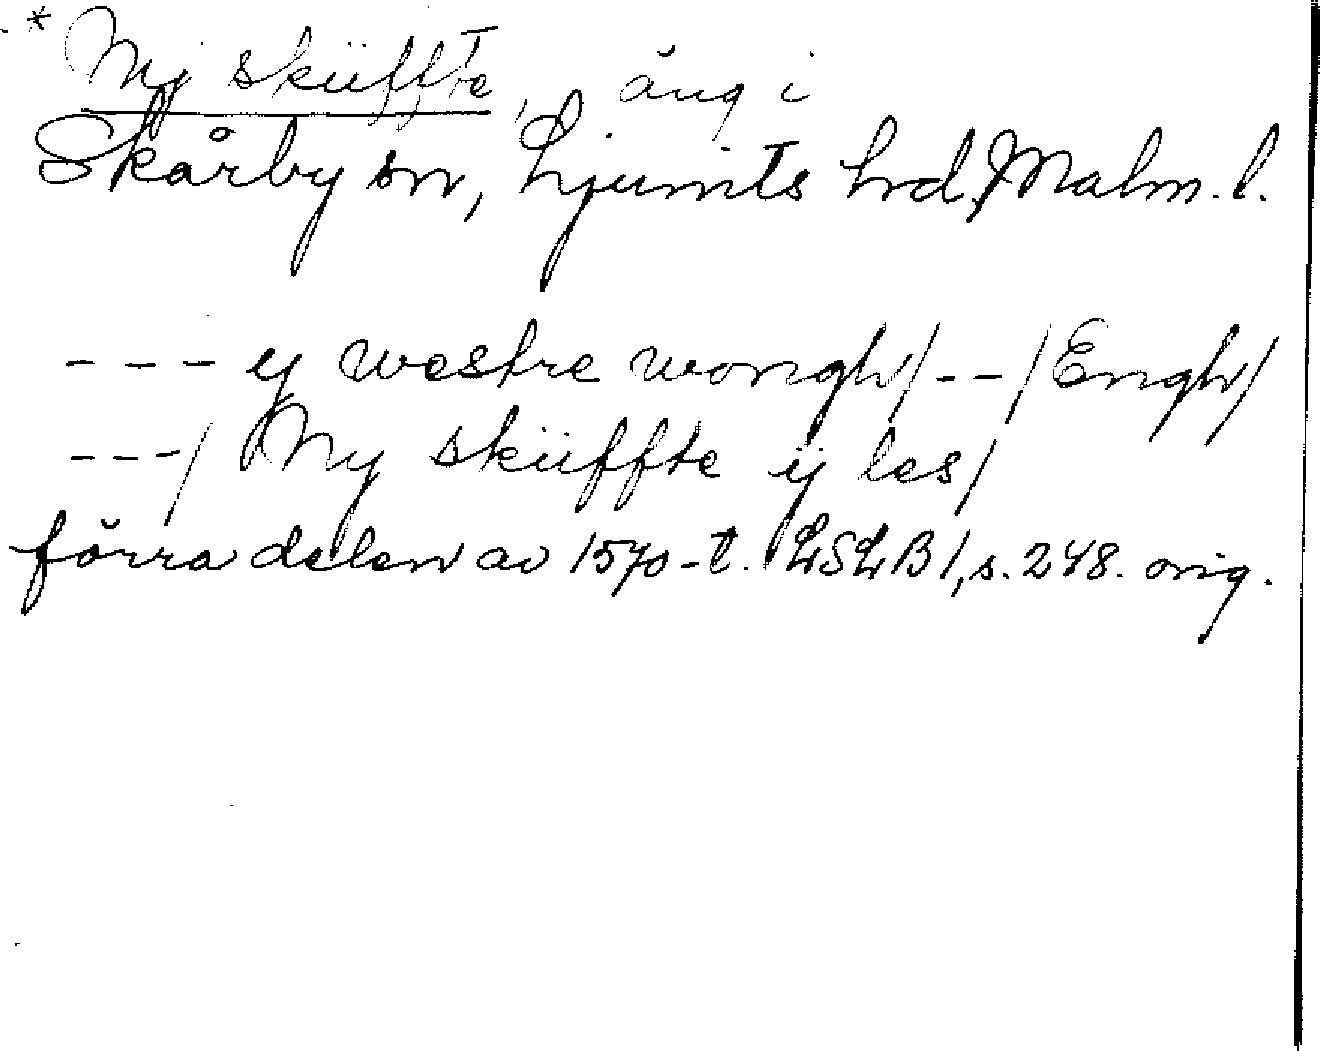 * Ny sküffte, äng i
Skårby sn, Ljunits hrd, Malm. l.
--- y westre wongh/--/Engh/
---/ Ny sküffte ij les/
förra delen av 1570-t. LSLB 1, s. 248. orig.